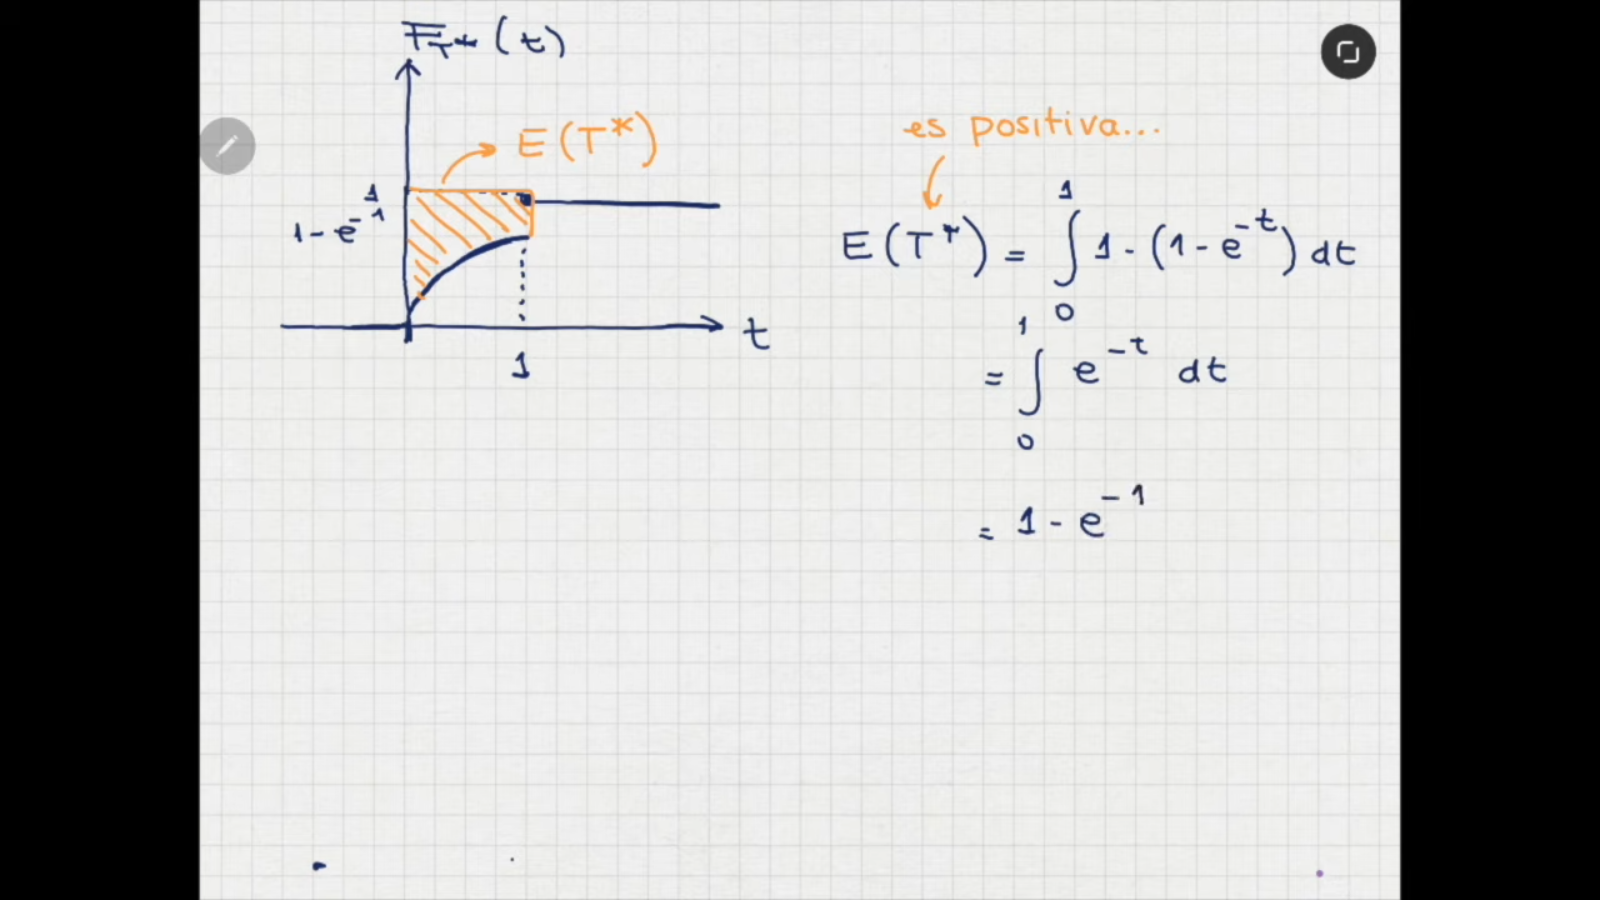 F_T* (t)
E (T*)
1
1 - e^-1
t
1
es positiva...
E (T*) = ∫_0^1 1 - (1 - e^-t) dt
= ∫_0^1 e^-t dt
= 1 - e^-1